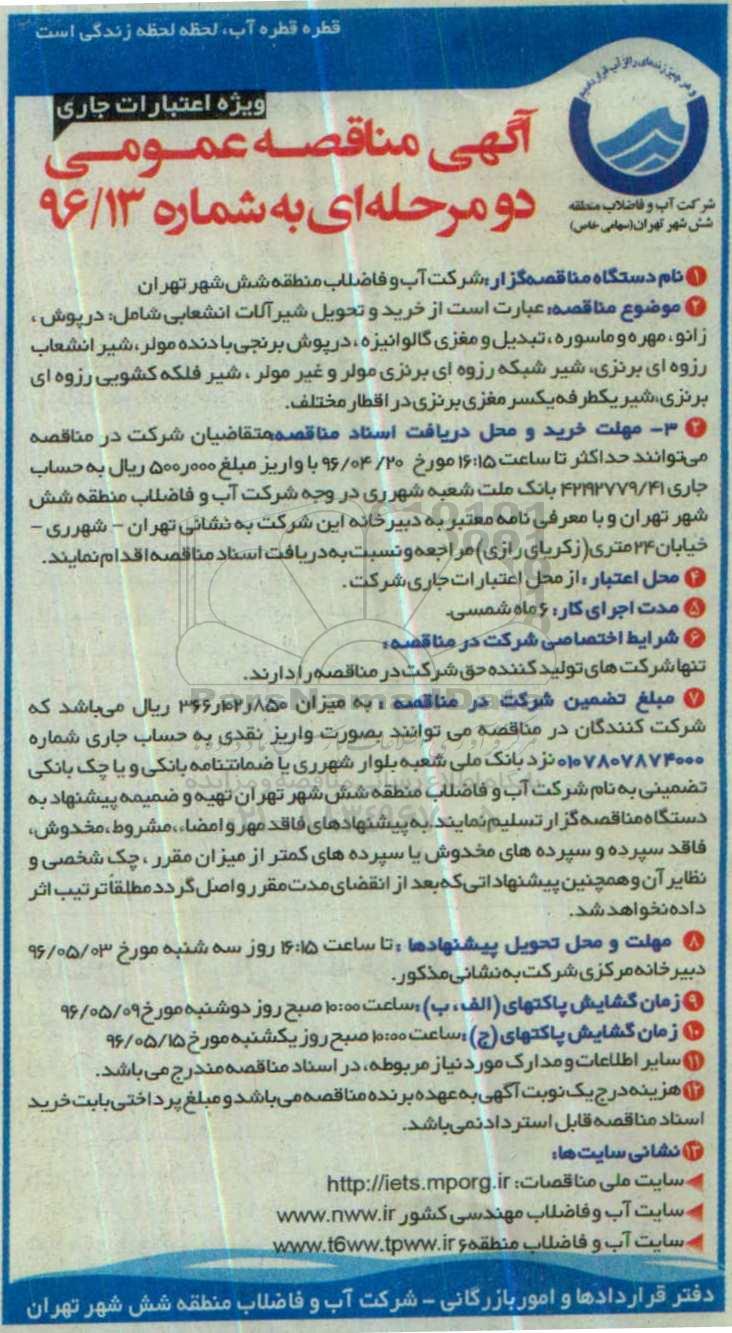 قطره قطره آب، لحظه لحظه زندگی است
ویژه اعتبارات جاری
آگهی مناقصه عمومی
دو مرحله‌ای به شماره ۹۶/۱۳
شرکت آب و فاضلاب منطقه
شش شهر تهران(سهامی خاص)
۱ نام دستگاه مناقصه‌گزار: شرکت آب و فاضلاب منطقه شش شهر تهران
۲ موضوع مناقصه: عبارت است از خرید و تحویل شیرآلات انشعابی شامل: درپوش،
زانو، مهره و ماسوره، تبدیل و مغزی گالوانیزه، درپوش برنجی با دنده مولر، شیر انشعاب
رزوه ای برنزی، شیر شبکه رزوه ای برنزی مولر و غیر مولر، شیر فلکه کشویی رزوه ای
برنزی، شیر یکطرفه یکسر مغزی برنزی در اقطار مختلف.
۲ ۳- مهلت خرید و محل دریافت اسناد مناقصه: متقاضیان شرکت در مناقصه
می‌توانند حداکثر تا ساعت ۱۶:۱۵ مورخ ۹۶/۰۴/۲۰ با واریز مبلغ ۵۰۰٫۰۰۰ ریال به حساب
جاری ۴۲۹۲۷۷۹/۴۱ بانک ملت شعبه شهرری در وجه شرکت آب و فاضلاب منطقه شش
شهر تهران و با معرفی نامه معتبر به دبیرخانه این شرکت به نشانی تهران - شهرری -
خیابان ۲۴ متری (زکریای رازی) مراجعه و نسبت به دریافت اسناد مناقصه اقدام نمایند.
۴ محل اعتبار: از محل اعتبارات جاری شرکت.
۵ مدت اجرای کار: ۶ ماه شمسی.
۶ شرایط اختصاصی شرکت در مناقصه:
تنها شرکت های تولید کننده حق شرکت در مناقصه را دارند.
۷ مبلغ تضمین شرکت در مناقصه: به میزان ریال می‌باشد که
شرکت کنندگان در مناقصه می توانند بصورت واریز نقدی به حساب جاری شماره
۰۱۰۷۸۰۷۸۷۴۰۰۰ نزد بانک ملی شعبه بلوار شهرری یا ضمانتنامه بانکی و یا چک بانکی
تضمینی به نام شرکت آب و فاضلاب منطقه شش شهر تهران تهیه و ضمیمه پیشنهاد به
دستگاه مناقصه گزار تسلیم نمایند. به پیشنهادهای فاقد مهر و امضاء، مشروط، مخدوش،
فاقد سپرده و سپرده های مخدوش یا سپرده های کمتر از میزان مقرر، چک شخصی و
نظایر آن و همچنین پیشنهاداتی که بعد از انقضای مدت مقرر واصل گردد مطلقاً ترتیب اثر
داده نخواهد شد.
۸ مهلت و محل تحویل پیشنهادها: تا ساعت ۱۶:۱۵ روز سه شنبه مورخ ۹۶/۰۵/۰۳
دبیرخانه مرکزی شرکت به نشانی مذکور.
۹ زمان گشایش پاکتهای (الف، ب): ساعت ۱۰:۰۰ صبح روز دوشنبه مورخ ۹۶/۰۵/۰۹
۱۰ زمان گشایش پاکتهای (ج): ساعت ۱۰:۰۰ صبح روز یکشنبه مورخ ۹۶/۰۵/۱۵
۱۱ سایر اطلاعات و مدارک مورد نیاز مربوطه، در اسناد مناقصه مندرج می باشد.
۱۲ هزینه درج یک نوبت آگهی به عهده برنده مناقصه می‌باشد و مبلغ پرداختی بابت خرید
اسناد مناقصه قابل استرداد نمی‌باشد.
۱۳ نشانی سایت ها:
سایت ملی مناقصات: http://iets.mporg.ir
سایت آب و فاضلاب مهندسی کشور www.nww.ir
سایت آب و فاضلاب منطقه ۶ www.t6ww.tpww.ir
دفتر قراردادها و امور بازرگانی - شرکت آب و فاضلاب منطقه شش شهر تهران